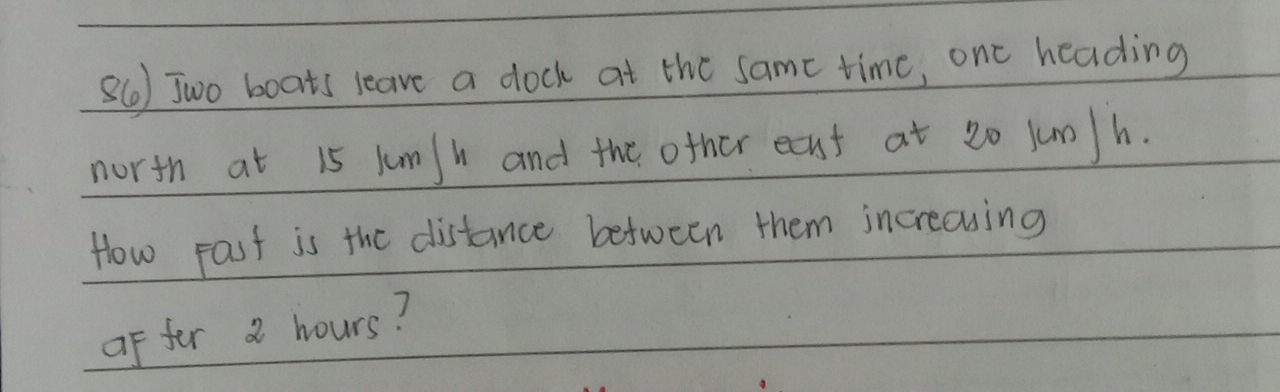 86) Two boats leave a dock at the same time, one heading
north at 15 km/h and the other east at 20 km/h.
How fast is the distance between them increasing
after 2 hours?